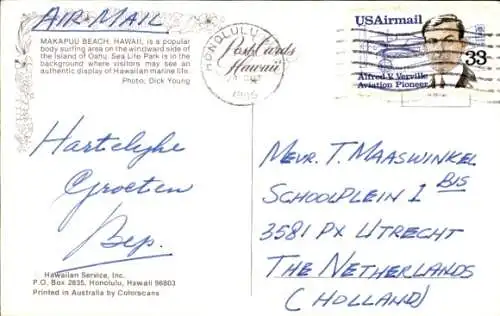 AIR MAIL
MAKAPUU BEACH, HAWAII, is a popular
body surfing area on the windward side of
the Island of Oahu. Sea Life Park is in the
background where visitors may see an
authentic display of Hawaiian marine life.
Photo: Dick Young
HONOLULU
PostCards
Hawaii
USAirmail
33
Alfred V. Verville
Aviation Pioneer
Hartelyke
Groeten
Bep.
MEVR. T. MAASWINKEL
SCHOOLPLEIN 1 BIS
3581 PX UTRECHT
THE NETHERLANDS
(HOLLAND)
Hawaiian Service, Inc.
P.O. Box 2835, Honolulu, Hawaii 96803
Printed in Australia by Colorscans